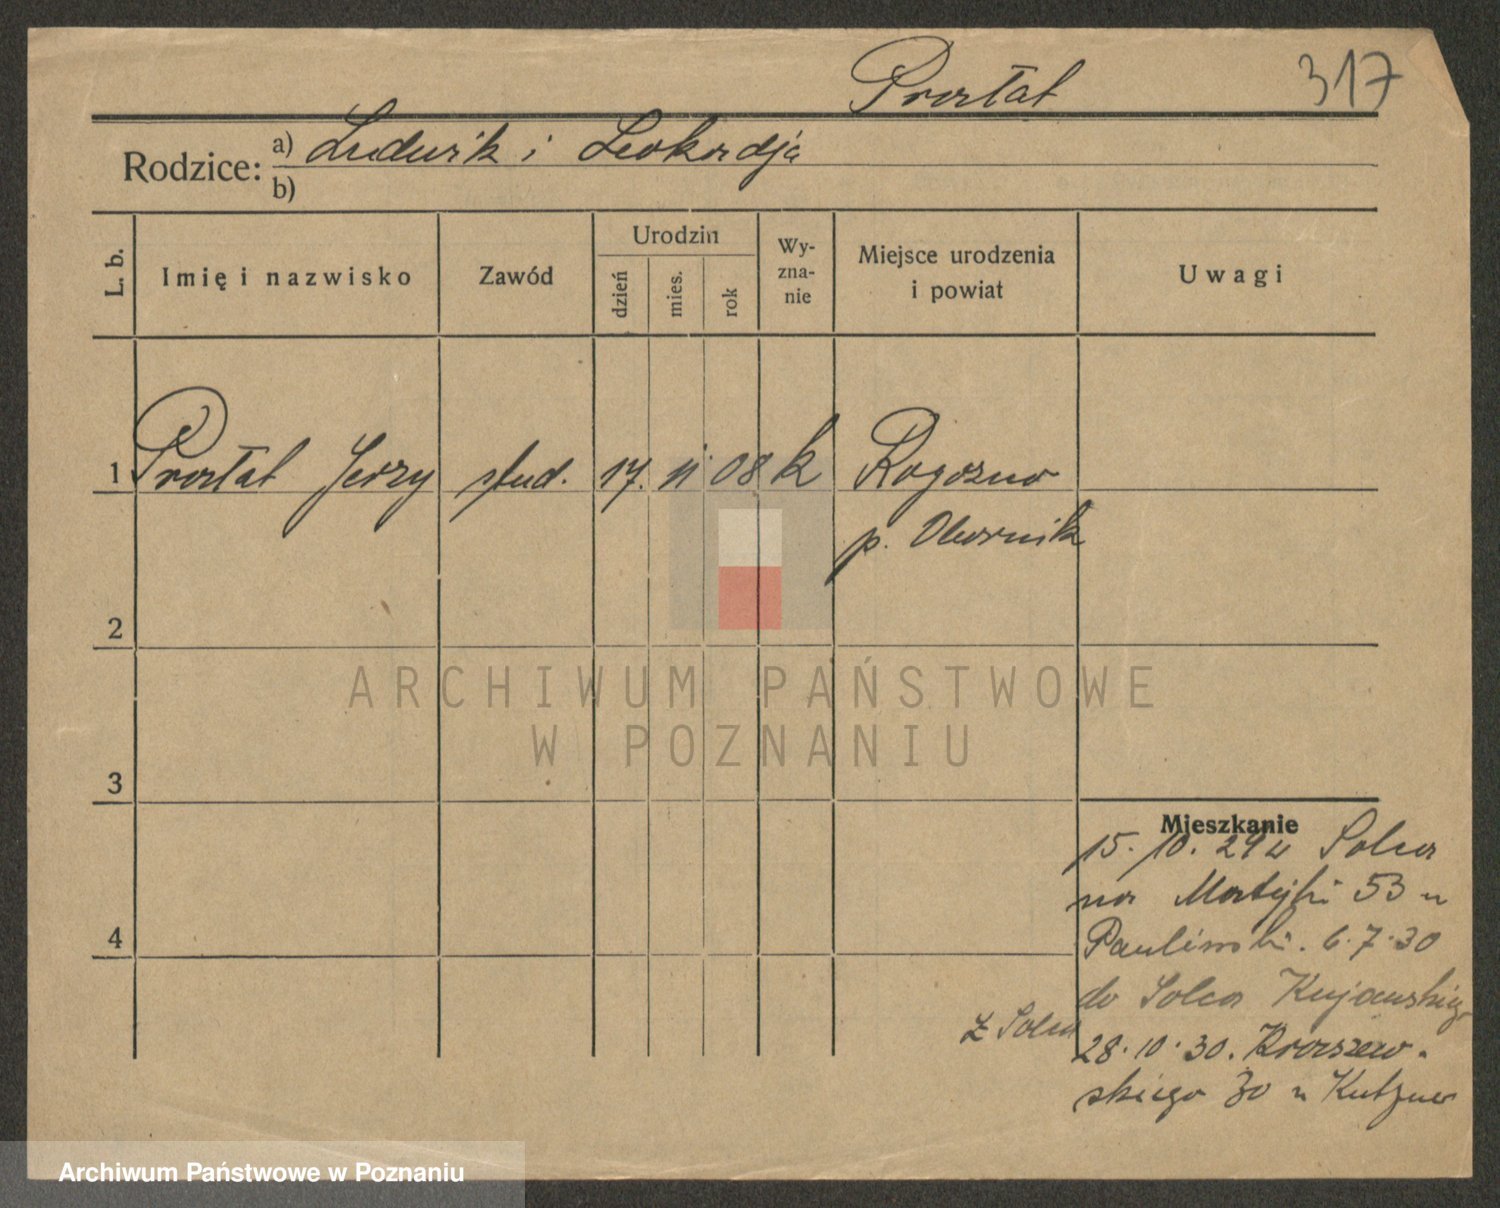 Prosłat 317
Rodzice: a) Ludwik i Leokadja
b)
L. b. Imię i nazwisko Zawód Urodzin dzień mies. rok Wy-zna-nie Miejsce urodzenia i powiat Uwagi
1 Prosłat Jerzy stud. 17. 11 08 k Rogozno
p. Obornik
2
3
Mieszkanie
15. 10. 29 z Solca
na Matejki 53 u
4
6.7.30
do Solca Kujawskieg
z Solca 28.10.30. Kraszew-
skiego 30 u Kutzner
ARCHIWUM PAŃSTWOWE
W POZNANIU
Archiwum Państwowe w Poznaniu